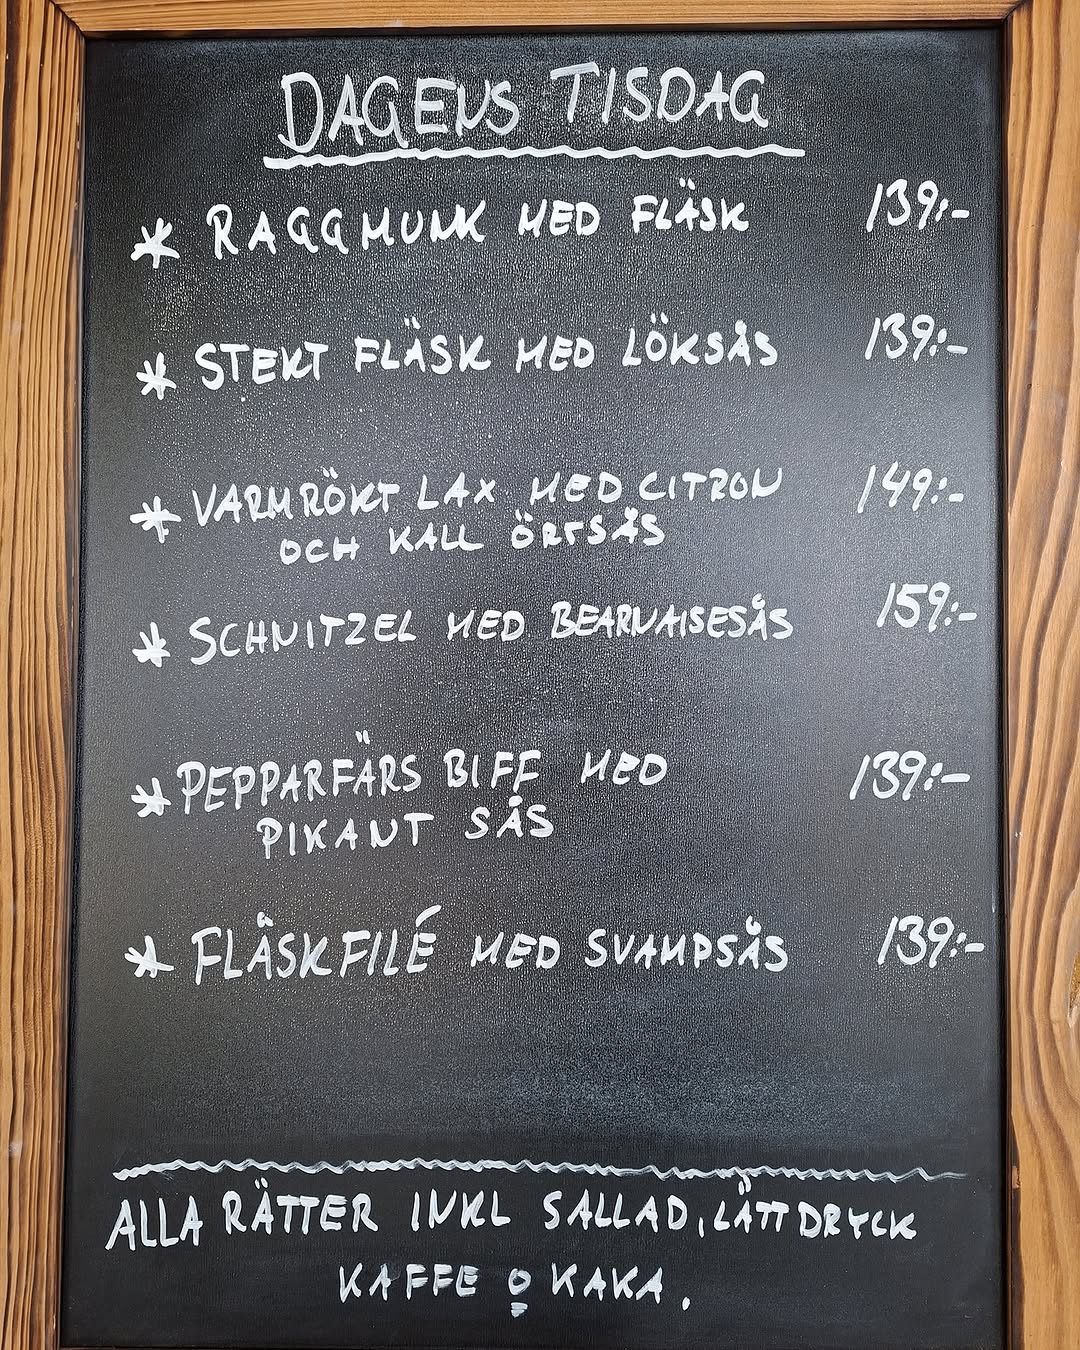 DAGENS TISDAG
* RAGGMUNK MED FLÄSK 139:-
* STEKT FLÄSK MED LÖKSÅS 139:-
* VARMRÖKT LAX MED CITRON 149:-
OCH KALL ÖRTSÅS
* SCHNITZEL MED BEARNAISESÅS 159:-
* PEPPARFÄRS BIFF MED 139:-
PIKANT SÅS
* FLÄSKFILÉ MED SVAMPSÅS 139:-
ALLA RÄTTER INKL SALLAD, LÄTTDRYCK
KAFFE O KAKA.